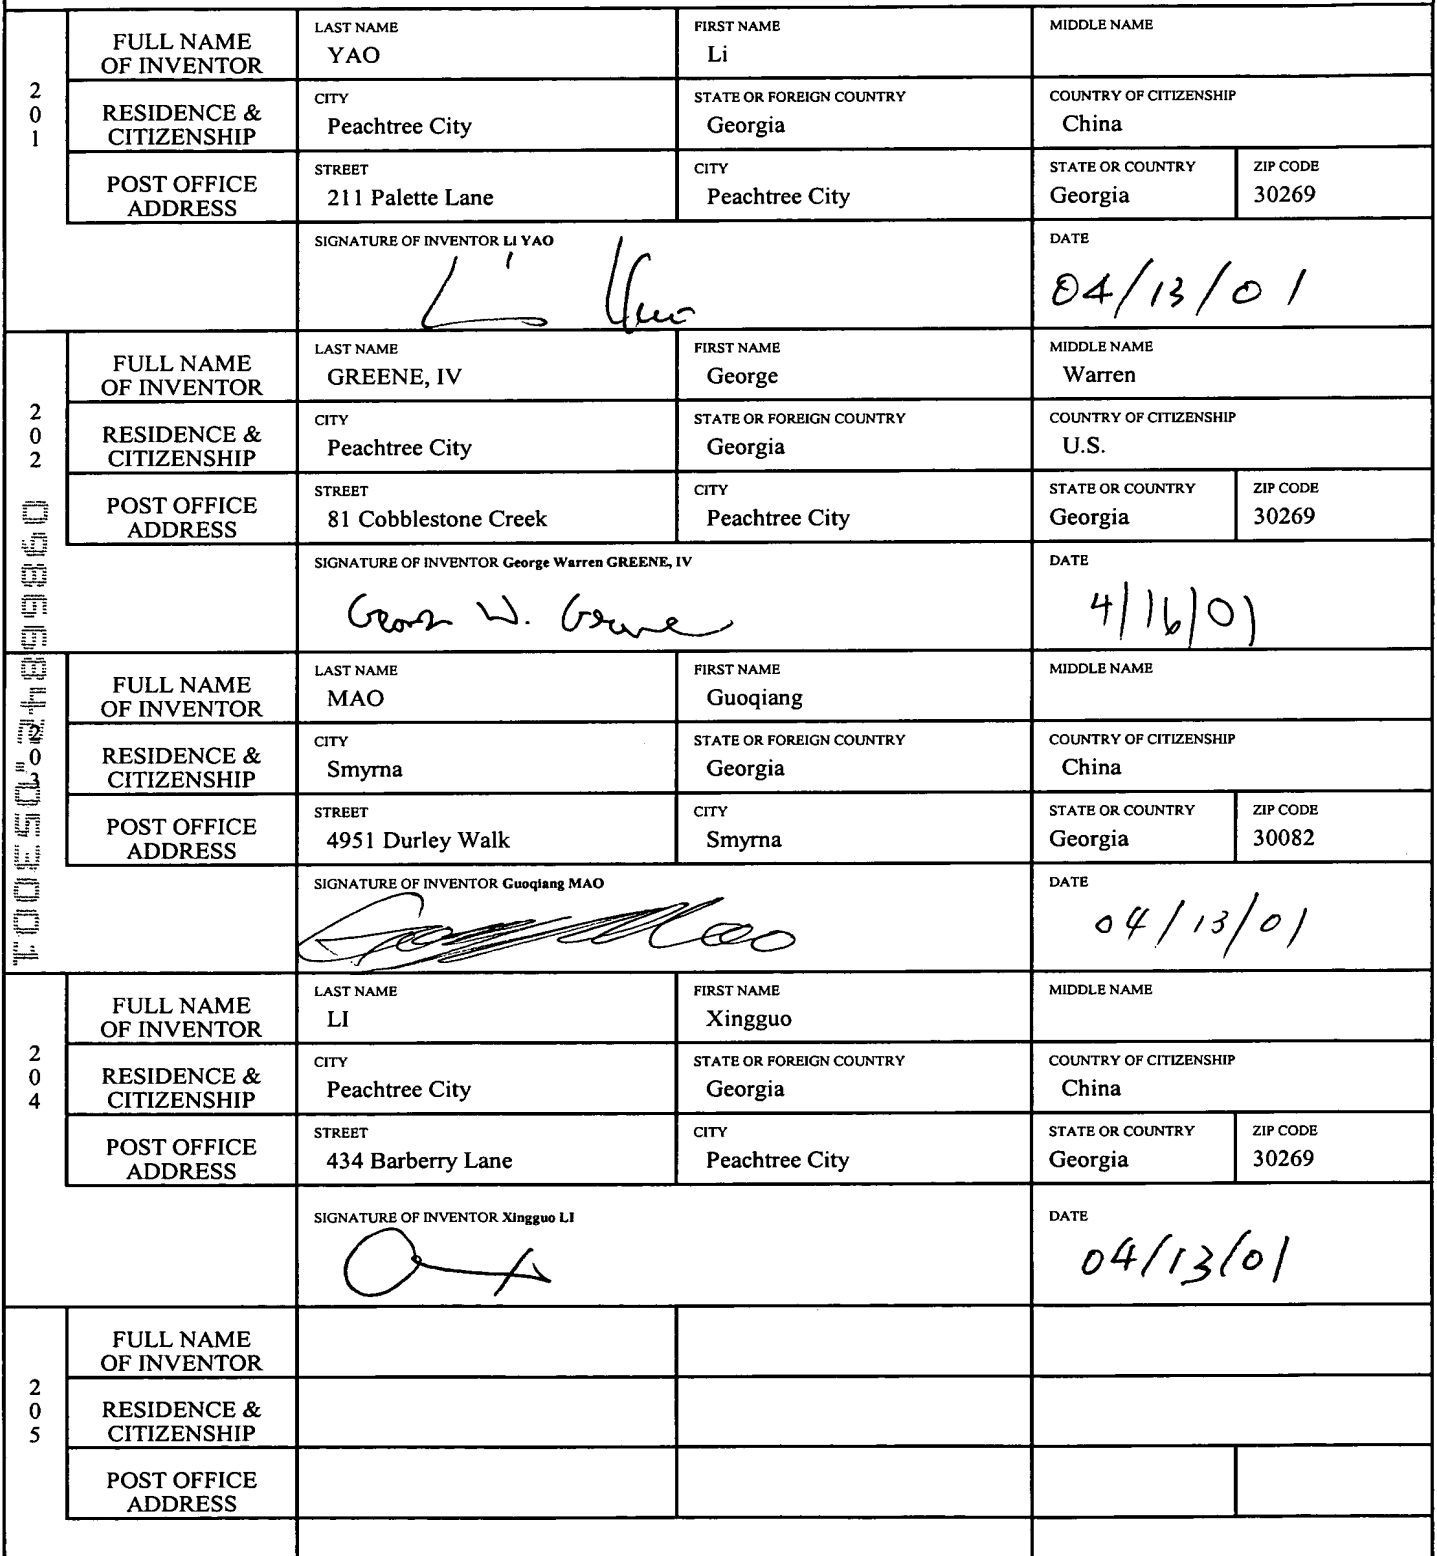 201
FULL NAME OF INVENTOR
LAST NAME
YAO
FIRST NAME
Li
MIDDLE NAME
RESIDENCE & CITIZENSHIP
CITY
Peachtree City
STATE OR FOREIGN COUNTRY
Georgia
COUNTRY OF CITIZENSHIP
China
POST OFFICE ADDRESS
STREET
211 Palette Lane
CITY
Peachtree City
STATE OR COUNTRY
Georgia
ZIP CODE
30269
SIGNATURE OF INVENTOR LI YAO
Li Yao
DATE
04/13/01
202
FULL NAME OF INVENTOR
LAST NAME
GREENE, IV
FIRST NAME
George
MIDDLE NAME
Warren
RESIDENCE & CITIZENSHIP
CITY
Peachtree City
STATE OR FOREIGN COUNTRY
Georgia
COUNTRY OF CITIZENSHIP
U.S.
POST OFFICE ADDRESS
STREET
81 Cobblestone Creek
CITY
Peachtree City
STATE OR COUNTRY
Georgia
ZIP CODE
30269
SIGNATURE OF INVENTOR George Warren GREENE, IV
George W. Greene
DATE
4/16/01
09866842 "053001
203
FULL NAME OF INVENTOR
LAST NAME
MAO
FIRST NAME
Guoqiang
MIDDLE NAME
RESIDENCE & CITIZENSHIP
CITY
Smyrna
STATE OR FOREIGN COUNTRY
Georgia
COUNTRY OF CITIZENSHIP
China
POST OFFICE ADDRESS
STREET
4951 Durley Walk
CITY
Smyrna
STATE OR COUNTRY
Georgia
ZIP CODE
30082
SIGNATURE OF INVENTOR Guoqiang MAO
DATE
04/13/01
204
FULL NAME OF INVENTOR
LAST NAME
LI
FIRST NAME
Xingguo
MIDDLE NAME
RESIDENCE & CITIZENSHIP
CITY
Peachtree City
STATE OR FOREIGN COUNTRY
Georgia
COUNTRY OF CITIZENSHIP
China
POST OFFICE ADDRESS
STREET
434 Barberry Lane
CITY
Peachtree City
STATE OR COUNTRY
Georgia
ZIP CODE
30269
SIGNATURE OF INVENTOR Xingguo LI
DATE
04/13/01
205
FULL NAME OF INVENTOR
RESIDENCE & CITIZENSHIP
POST OFFICE ADDRESS